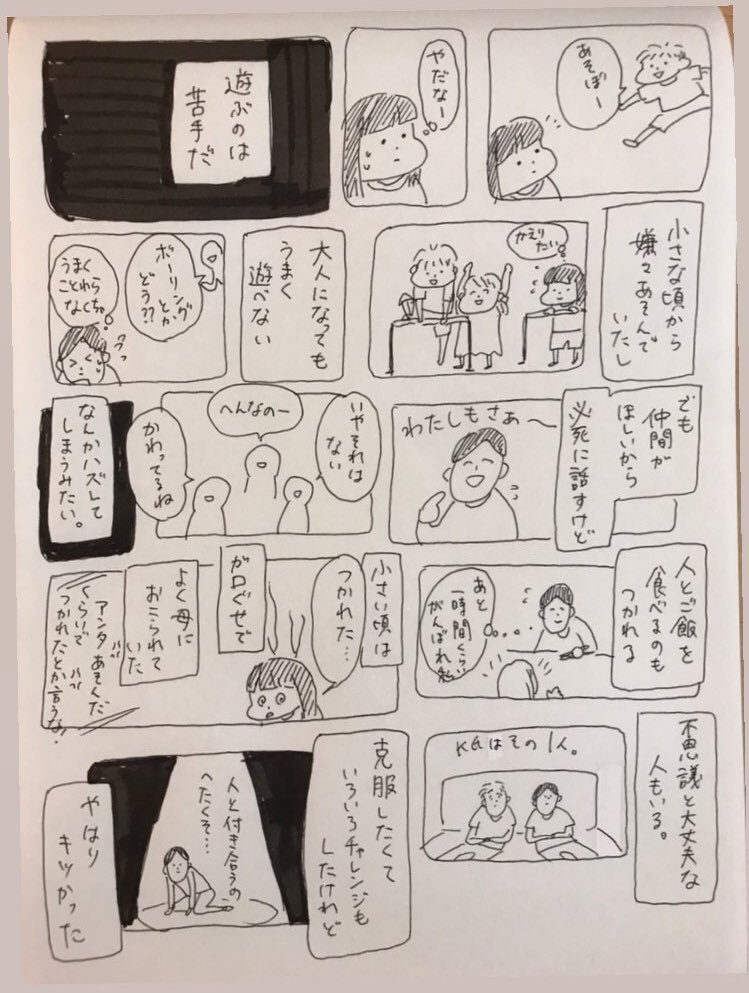 あそぼー
やだなー
遊ぶのは
苦手だ
小さな頃から
嫌々あそんで
いたし
かえり
たい
大人になっても
うまく
遊べない
ボーリング
とか
どう??
うまく
ことわら
なくちゃ
でも
仲間が
ほしいから
必死に話すけど
わたしもさぁ〜
いやそれは
ない
へんなのー
かわってるね
なんかハズして
しまうみたい。
人とご飯を
食べるのも
つかれる
あと
一時間くらい
がんばれ私
小さい頃は
つかれた…
が口ぐせで
よく母に
おこられて
いた
アンタあそんだ
くらいで
つかれたとか言うな!
バババ
バババ
不思議と大丈夫な
人もいる。
Kなはその1人。
克服したくて
いろいろチャレンジも
したけれど
人と付き合うの
へたくそ…
やはり
キツかった